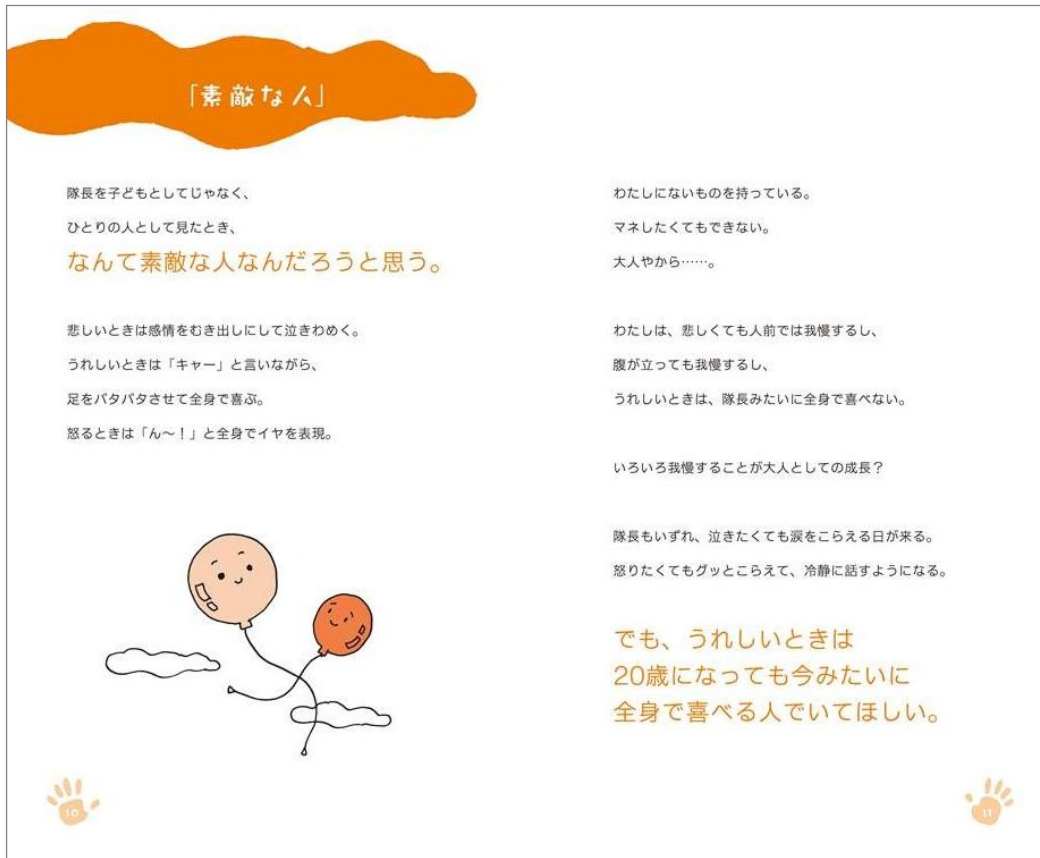 「素敵な人」
隊長を子どもとしてじゃなく、
ひとりの人として見たとき、
なんて素敵な人なんだろうと思う。
悲しいときは感情をむき出しにして泣きわめく。
うれしいときは「キャー」と言いながら、
足をバタバタさせて全身で喜ぶ。
怒るときは「ん〜！」と全身でイヤを表現。
10
わたしにないものを持っている。
マネしたくてもできない。
大人やから……。
わたしは、悲しくても人前では我慢するし、
腹が立っても我慢するし、
うれしいときは、隊長みたいに全身で喜べない。
いろいろ我慢することが大人としての成長？
隊長もいずれ、泣きたくても涙をこらえる日が来る。
怒りたくてもグッとこらえて、冷静に話すようになる。
でも、うれしいときは
20歳になっても今みたいに
全身で喜べる人でいてほしい。
11